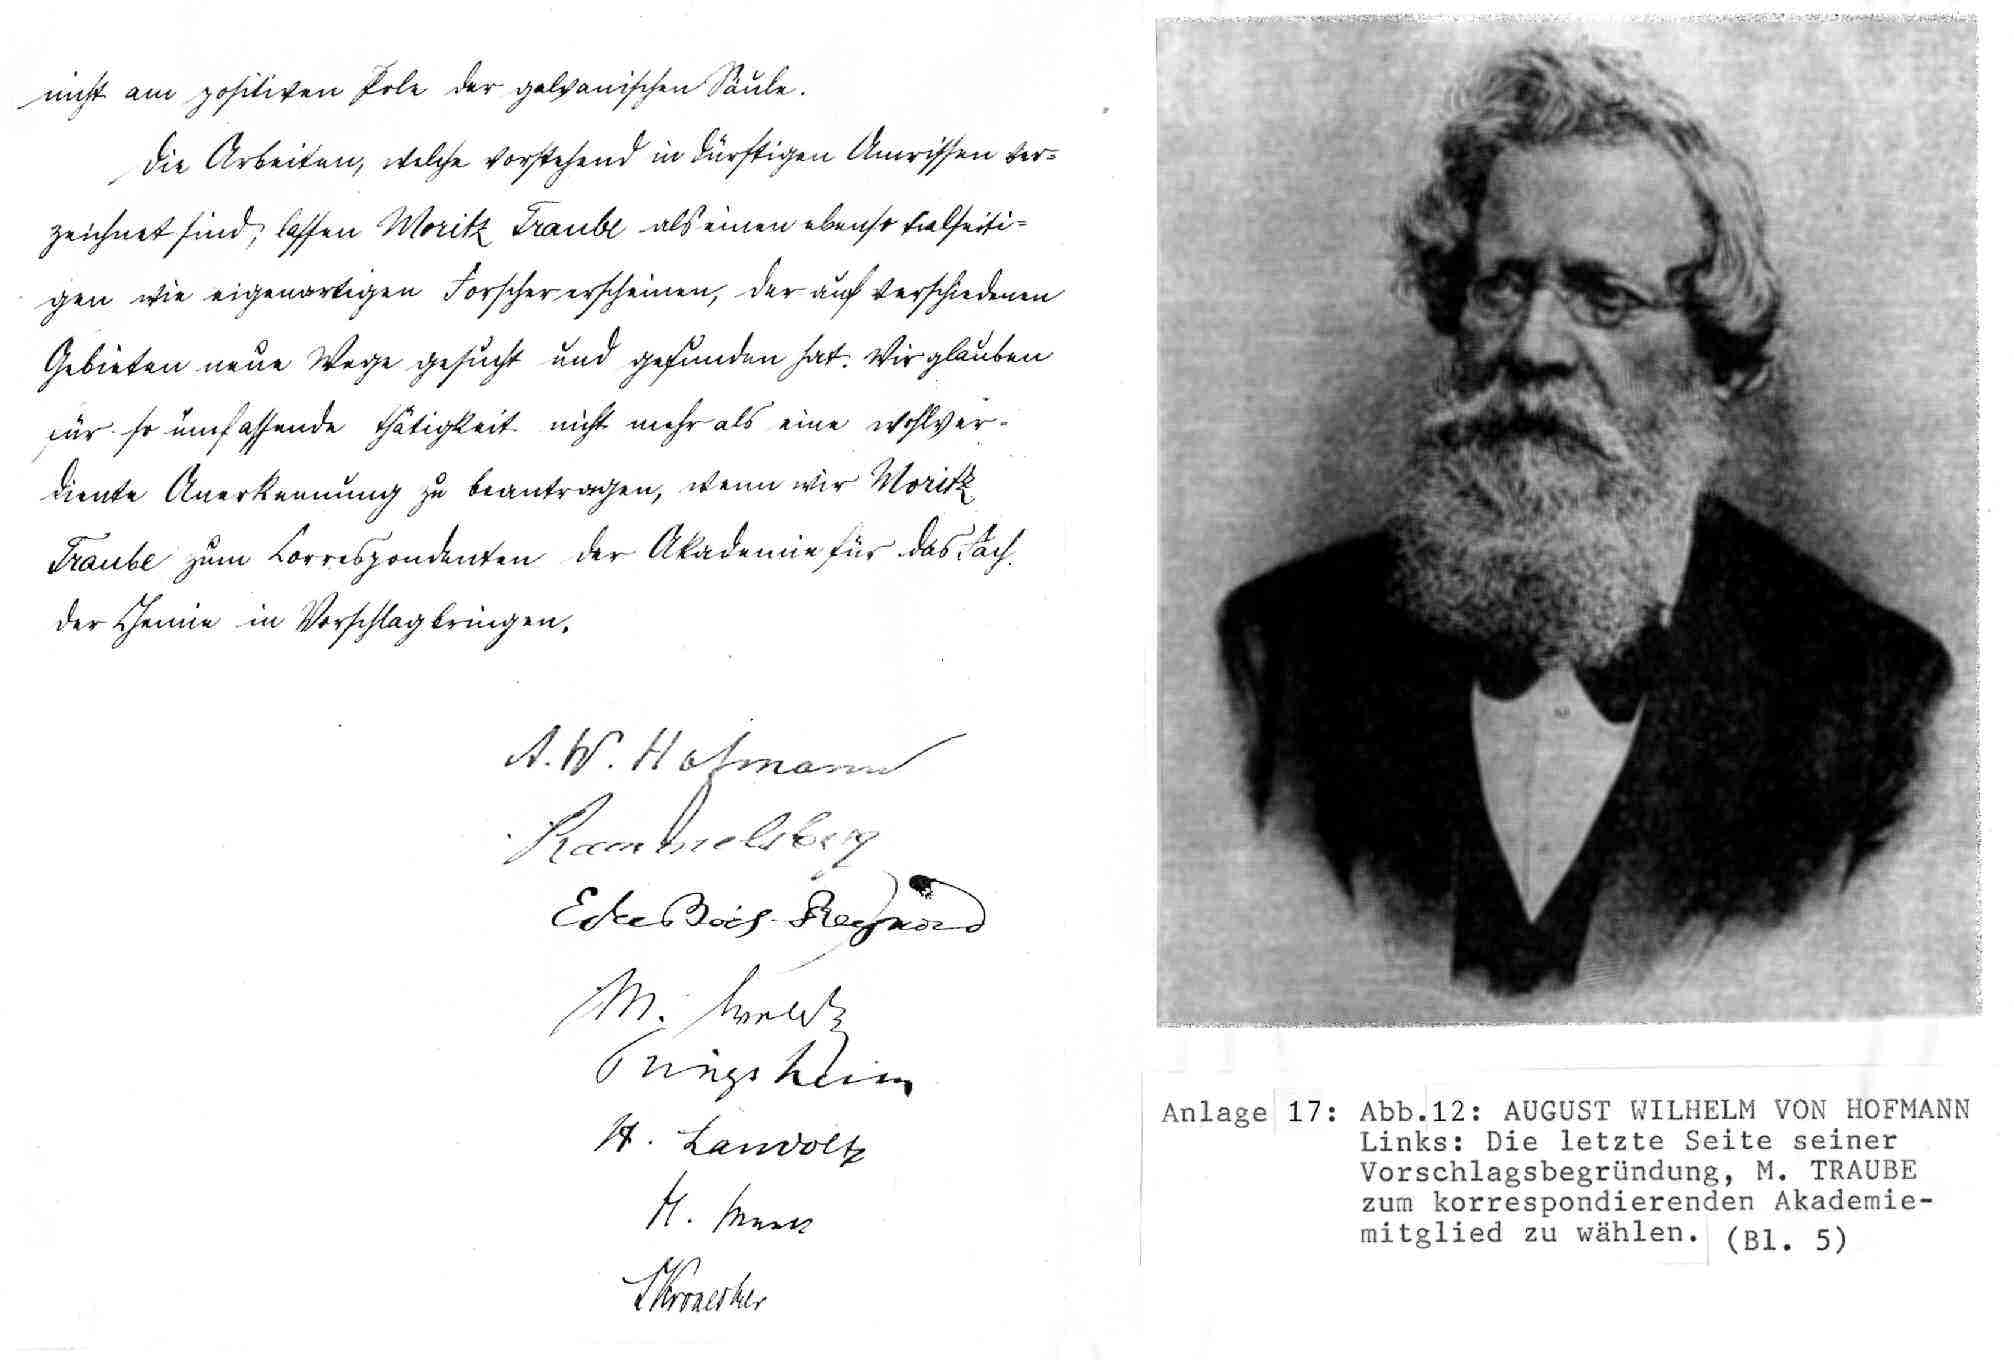 nicht am positiven Pole der galvanischen Säule.
Die Arbeiten, welche vorstehend in dürftigen Umrissen ver=
zeichnet sind, lassen Moritz Traube als einen ebenso vielseiti=
gen wie eigenartigen Forscher erscheinen, der auf verschiedenen
Gebieten neue Wege gesucht und gefunden hat. Wir glauben
für so umfassende Thätigkeit nicht mehr als eine wohlver-
diente Anerkennung zu beantragen, wenn wir Moritz
Traube zum Correspondenten der Akademie für das Fach
der Chemie in Vorschlag bringen.
A. W. Hofmann
Rammelsberg
E du Bois-Reymond
Pringsheim
H. Landolt
H. Munk
LKronecker
Anlage 17: Abb.12: AUGUST WILHELM VON HOFMANN
Links: Die letzte Seite seiner
Vorschlagsbegründung, M. TRAUBE
zum korrespondierenden Akademie-
mitglied zu wählen. (Bl. 5)